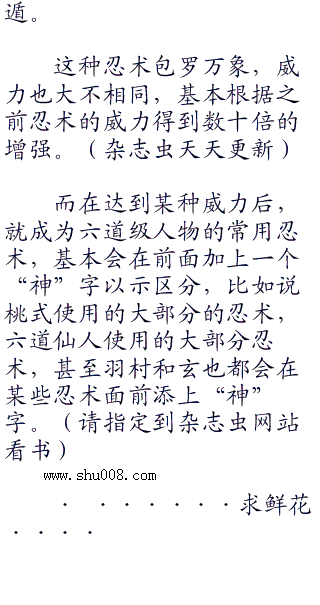 遁。
这种忍术包罗万象，威
力也大不相同，基本根据之
前忍术的威力得到数十倍的
增强。（杂志虫天天更新）
而在达到某种威力后，
就成为六道级人物的常用忍
术，基本会在前面加上一个
“神”字以示区分，比如说
桃式使用的大部分的忍术，
六道仙人使用的大部分忍
术，甚至羽村和玄也都会在
某些忍术面前添上“神”
字。（请指定到杂志虫网站
看书）
www.shu008.com
· ·······求鲜花
····